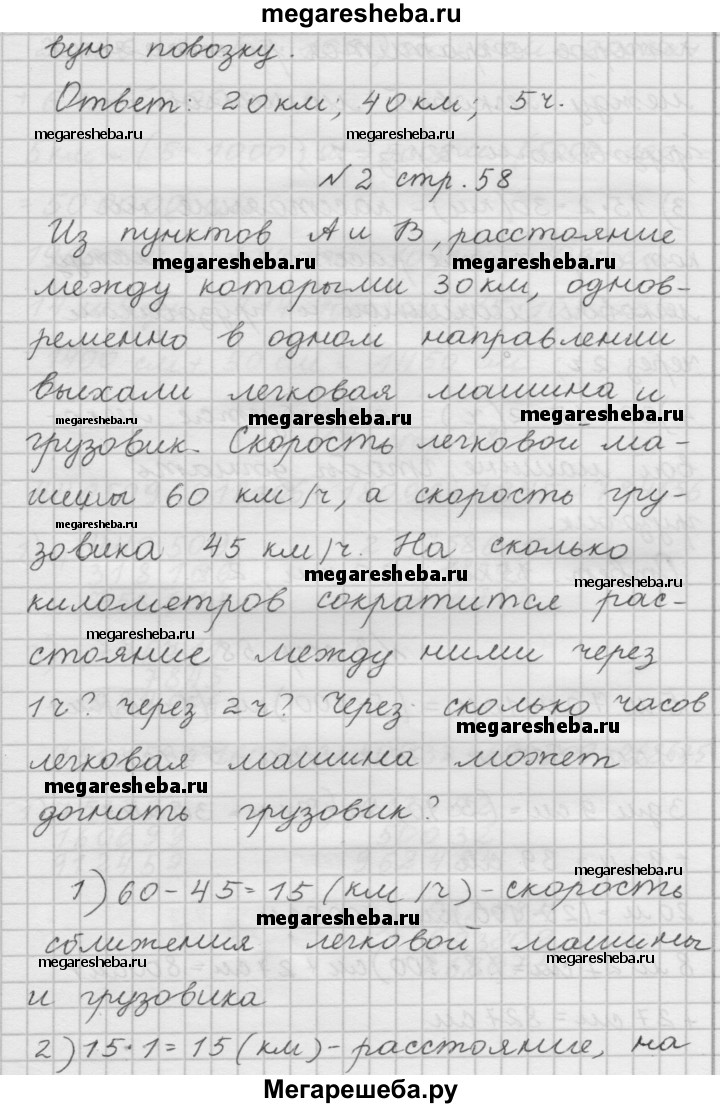 megaresheba.ru
вую повозку.
Ответ: 20 км; 40 км; 5 ч.
megaresheba.ru megaresheba.ru
№2 стр. 58
Из пунктов А и В, расстояние
megaresheba.ru megaresheba.ru
между которыми 30 км, однов-
ременно в одном направлении
выехали легковая машина и
megaresheba.ru megaresheba.ru megaresheba.ru
грузовик. Скорость легковой ма-
шины 60 км/ч, а скорость гру-
megaresheba.ru
зовика 45 км/ч. На сколько
megaresheba.ru megaresheba.ru
километров сократится рас-
megaresheba.ru
стояние между ними через
1ч? через 2ч? Через сколько часов
megaresheba.ru
легковая машина может
megaresheba.ru
догнать грузовик?
megaresheba.ru
1) 60 - 45 = 15 (км/ч) - скорость
megaresheba.ru
сближения легковой машины
megaresheba.ru megaresheba.ru
и грузовика
2) 15 · 1 = 15 (км) - расстояние, на
Мегарешеба.ру